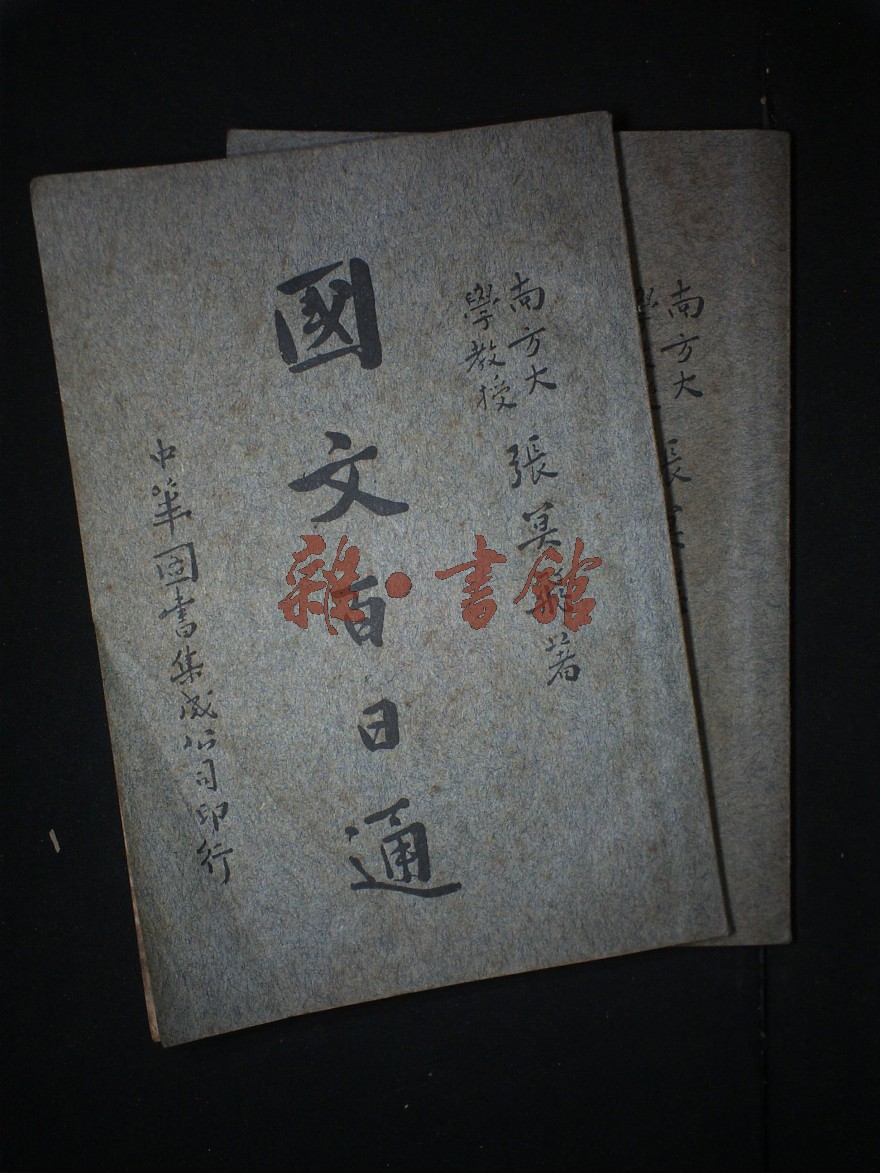 南方大
學教授
張冥飛著
國文百日通
中華圖書集成公司印行
雜·書館
南方大
張